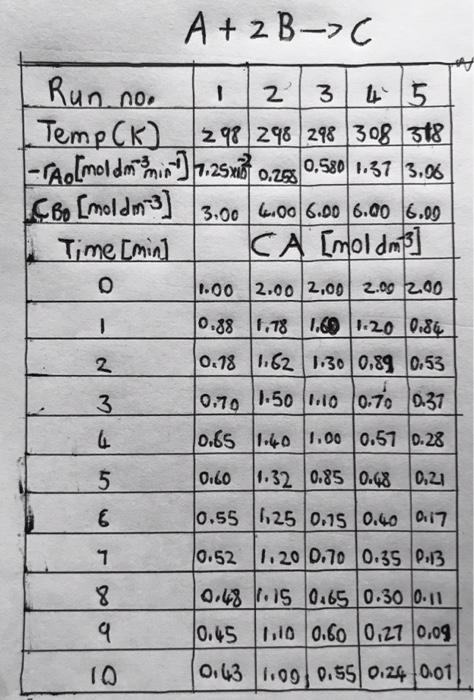 A + 2B → C
Run no. 1 2 3 4 5
Temp (K) 298 298 298 308 318
-rA0 [mol dm⁻³ min⁻¹] 7.25x10⁻² 0.258 0.580 1.37 3.06
CB0 [mol dm⁻³] 3.00 4.00 6.00 6.00 6.00
Time [min] CA [mol dm⁻³]
0 1.00 2.00 2.00 2.00 2.00
1 0.88 1.78 1.60 1.20 0.84
2 0.78 1.62 1.30 0.89 0.53
3 0.70 1.50 1.10 0.70 0.37
4 0.65 1.40 1.00 0.57 0.28
5 0.60 1.32 0.85 0.48 0.21
6 0.55 1.25 0.75 0.40 0.17
7 0.52 1.20 0.70 0.35 0.13
8 0.48 1.15 0.65 0.30 0.11
9 0.45 1.10 0.60 0.27 0.09
10 0.43 1.00 0.55 0.24 0.07